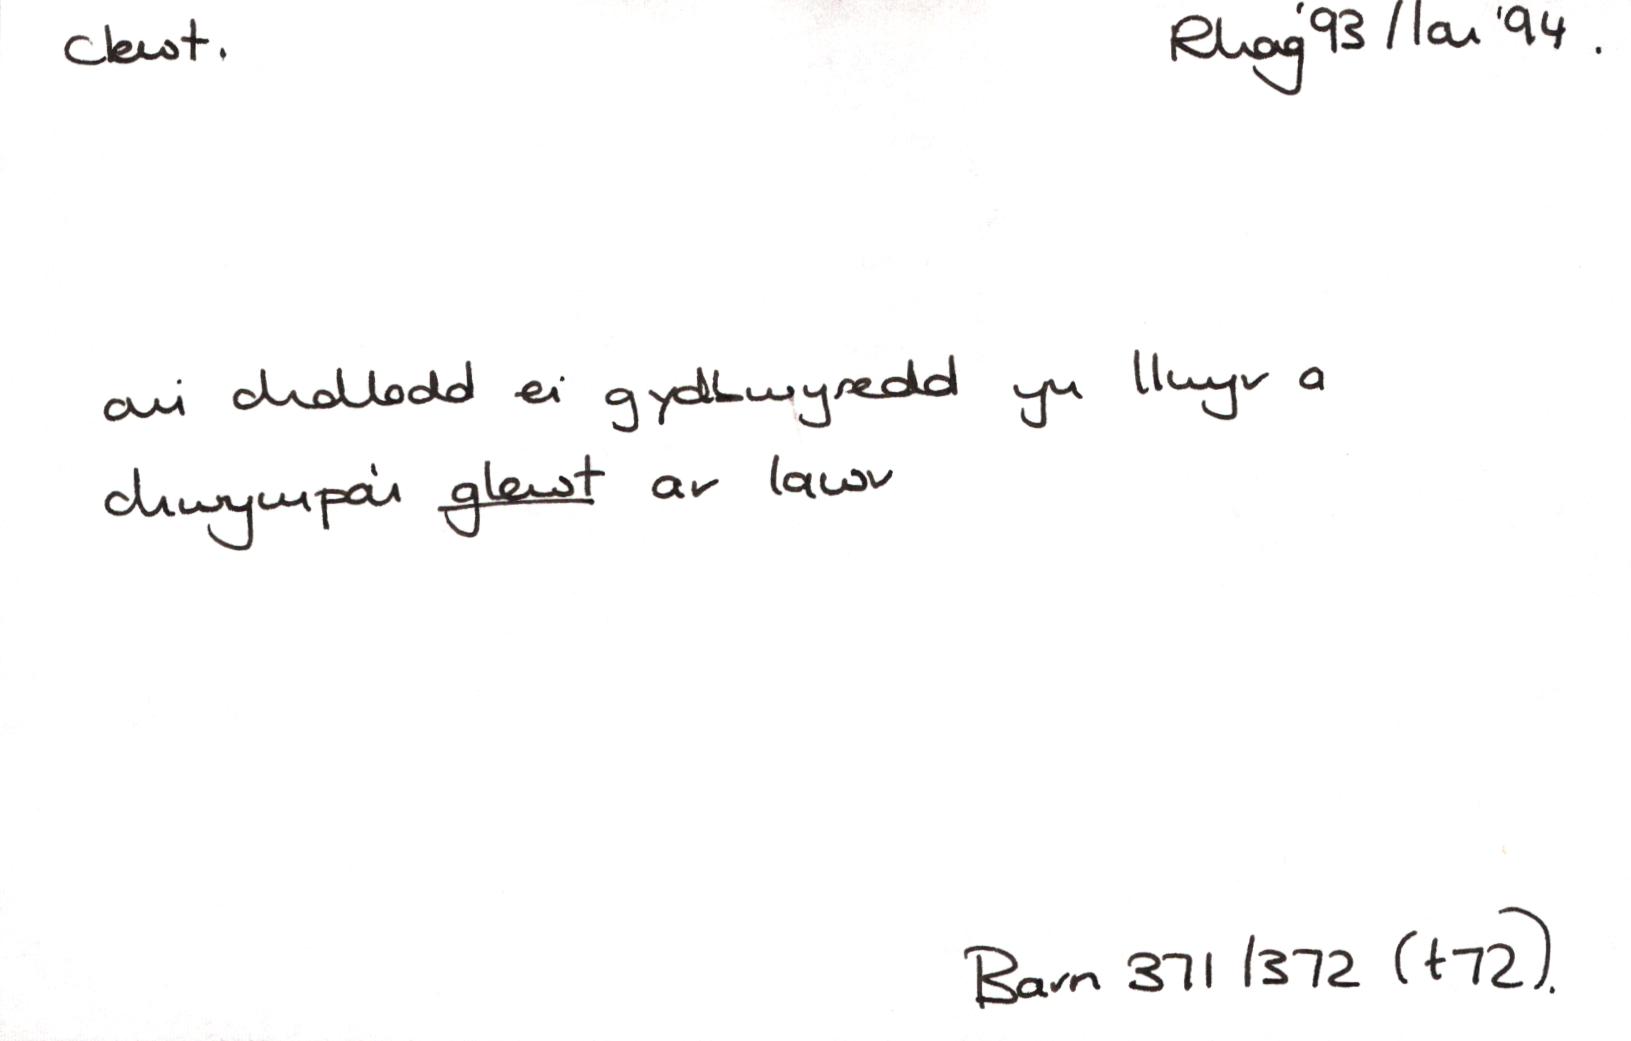 clewt. Rhag '93 / Ion '94.
ami chollodd ei gydbwysedd yn llwyr a
chwympo'n glewt ar lawr
Barn 371/372 (t72).